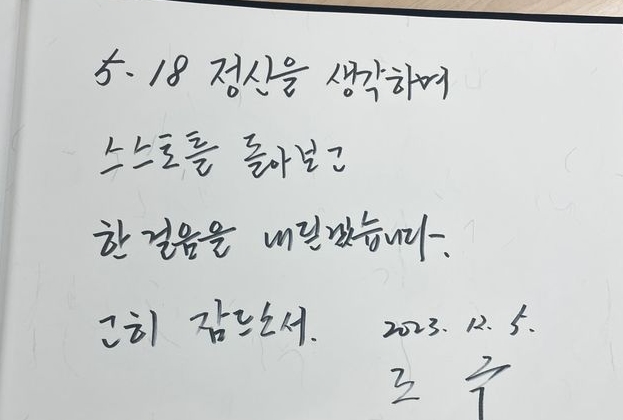 5. 18 정신을 생각하며
스스토를 돌아보고
한 걸음을 내딛겠습니다.
고히 잠드소서.
2023. 12. 5.
조 국